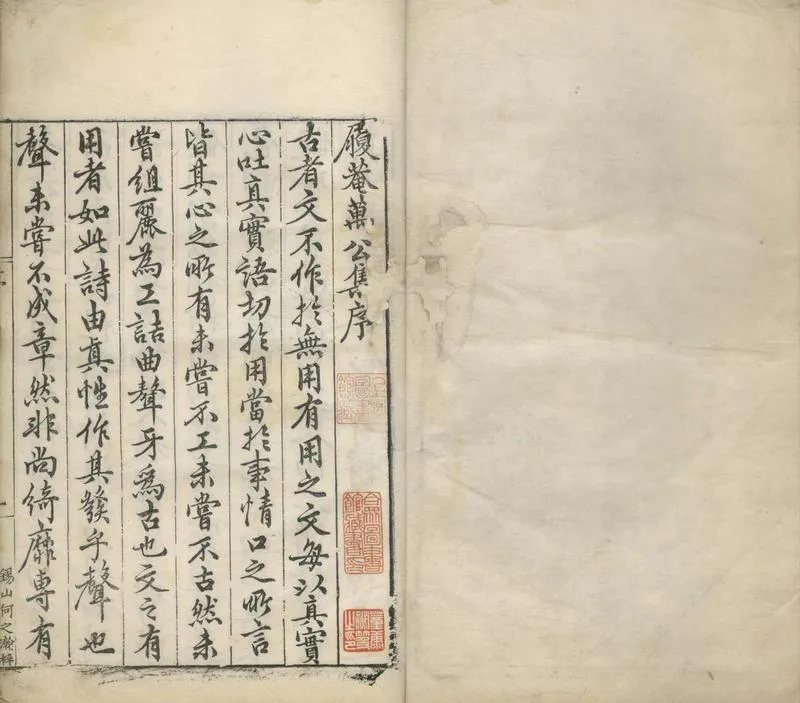 履菴萬公集序
古者文不作於無用有用之文每以真實
心吐真實語切於用當於事情口之所言
皆其心之所有未嘗不工未嘗不古然未
嘗組麗為工詰曲聱牙為古也文之有
用者如此詩由真性作其發乎聲也
聲未嘗不成章然非尚綺靡專有
錫山何之瀚梓